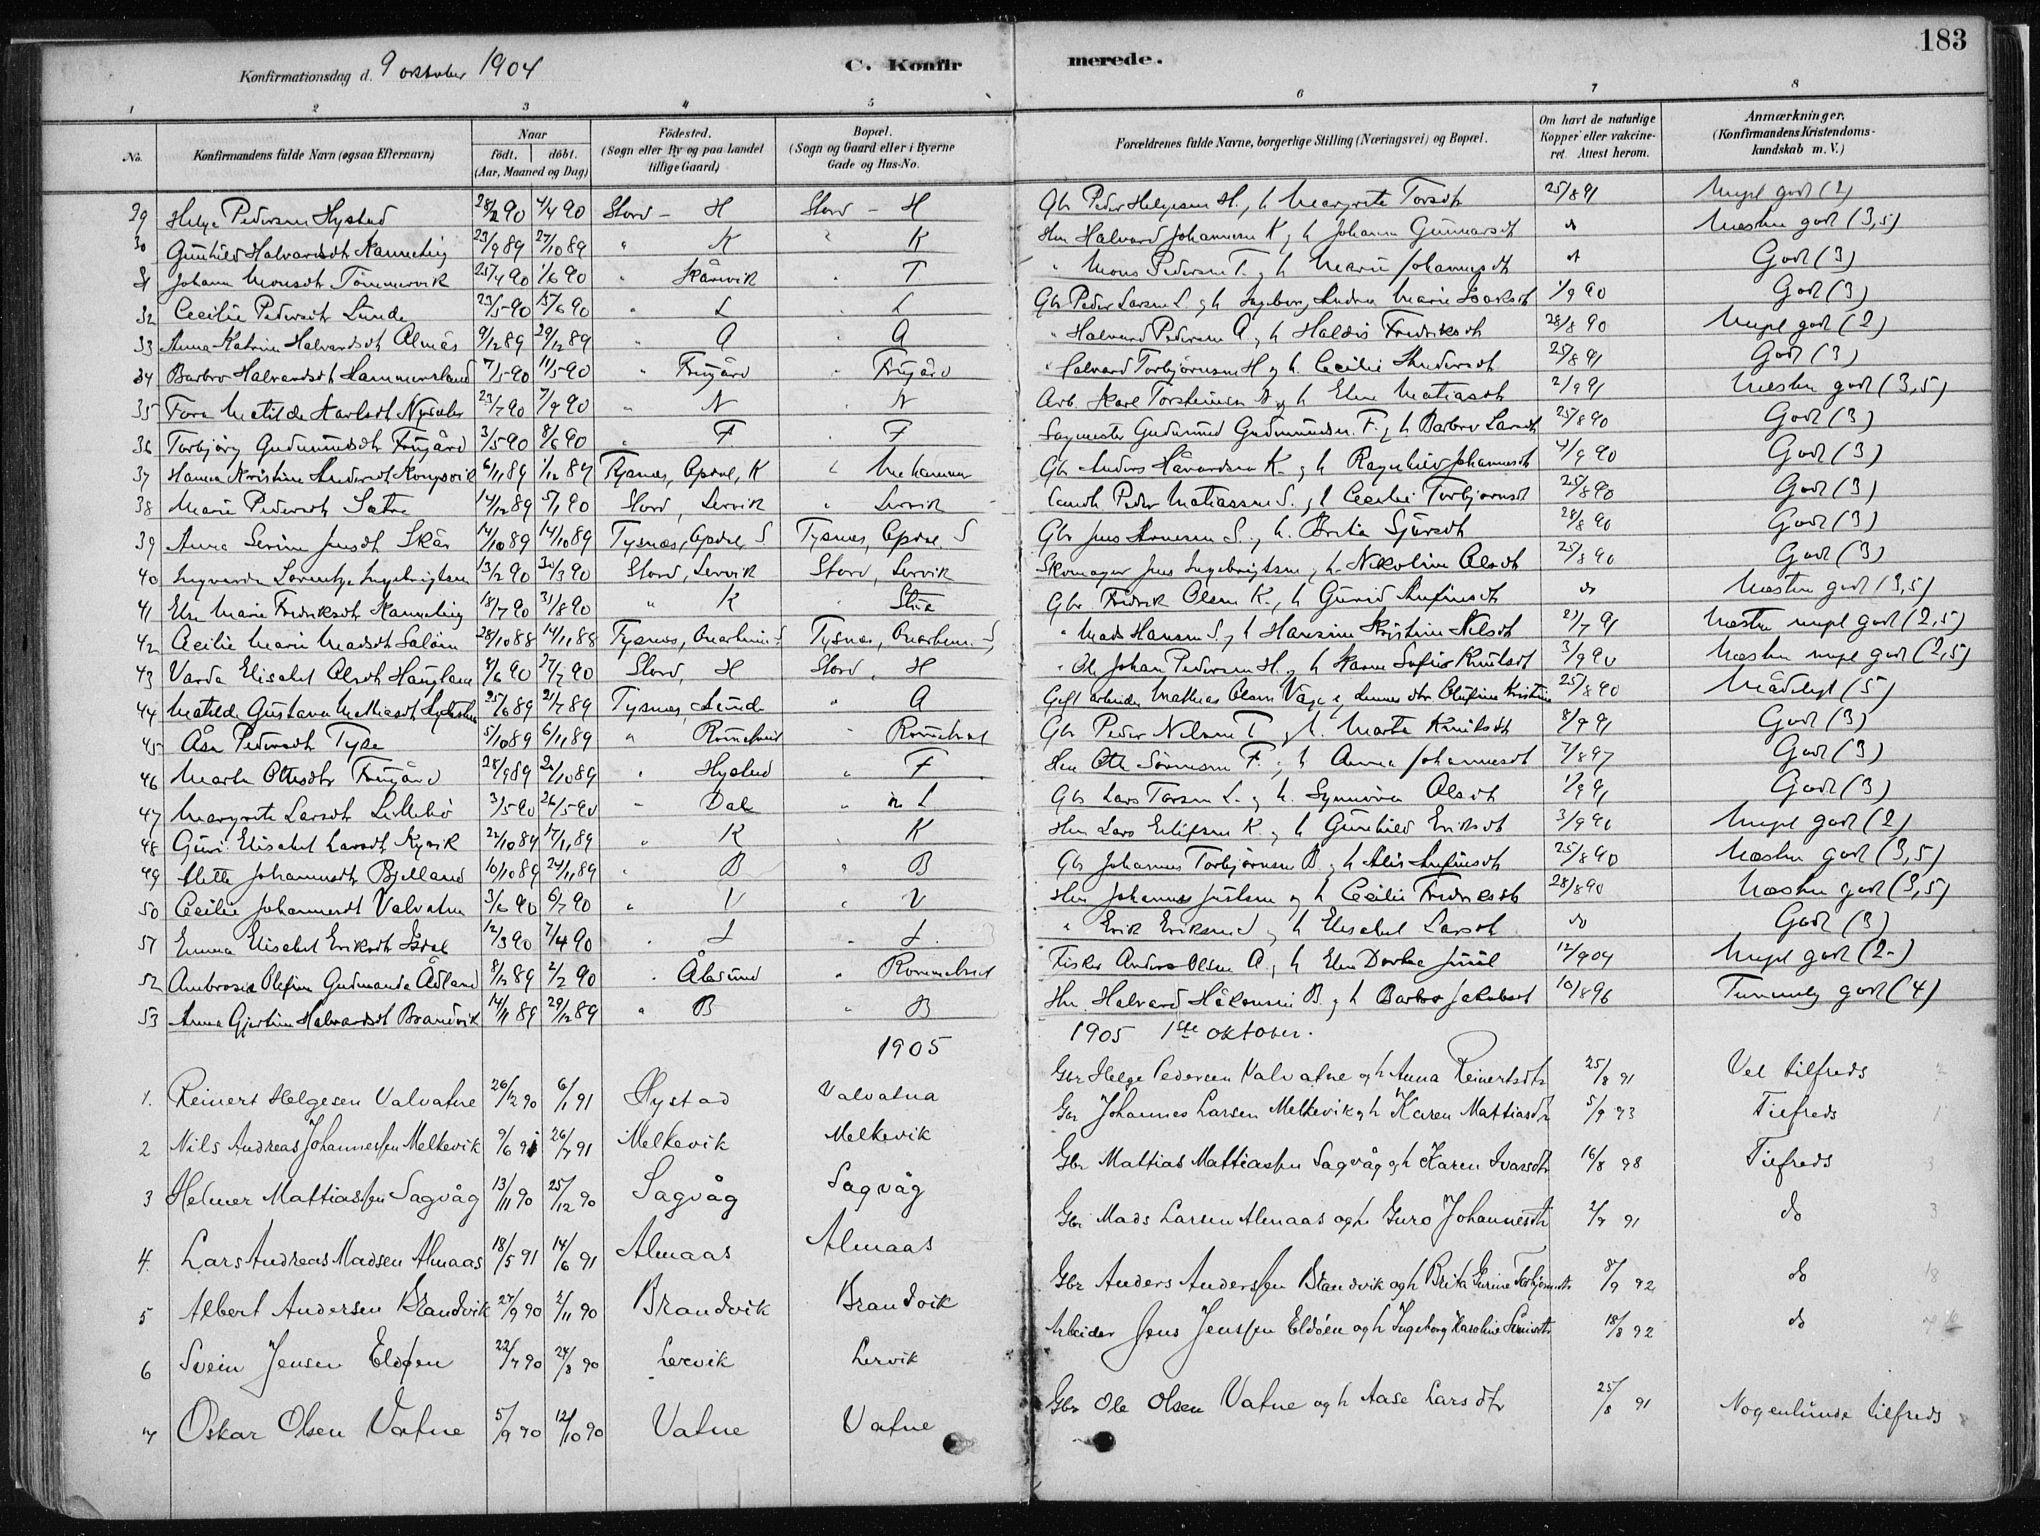 183
Konfirmationsdag d. 9 oktober 1904 C. Konfirmerede.
1 2 3 4 5 6 7 8
No. Konfirmandens fulde Navn (ogsaa Efternavn) Naar født. døbt. (Aar, Maaned og Dag) Fødested. (Sogn eller By og paa Landet tillige Gaard) Bopæl. (Sogn og Gaard eller i Byerne Gade og Hus-No. Forældrenes fulde Navne, borgerlige Stilling (Næringsvei) og Bopæl. Om havt de naturlige Kopper eller vakcineret. Attest herom. Anmærkninger. (Konfirmandens Kristendomskundskab m. V.)
29 Helge Pedersen Hystad 28/2 90 4/4 90 Stord - H Stord - H Gbr Peder Helgesen H., h Margrete Torsdtr 25/8 91 Meget godt (2)
30 Gunhild Halvardsdt 23/9 89 27/10 89 " K " K Hm Halvard Johannesen K og h Johanna Gunnarsdt do Næsten godt (3,5)
31 Johanne Monsdt Tömmervik 25/4 90 1/6 90 " Skånevik " T " Mons Pedersen T. og h Marie Johannesdt do Godt (3)
32 Cecilie Pedersdtr Lunde 23/5 90 15/6 90 " L " L Gbr Peder Larsen L. og h Ingeborg Andrea Marie Isaksdt 1/9 90 Godt (3)
33 Anna Katrine Halvardsdt Almås 9/12 89 29/12 89 " A " A " Halvard Pedersen A, h Haldis Fredriksdt 28/8 90 Meget godt (2)
34 Barbro Halvardsdt Hammersland 7/5 90 11/5 90 " Frugård " Frugård " Halvard Torbjörnsen H og h. Cecilie Andersdt 25/8 91 Godt (3)
35 Tora Matilde Karlsdt 23/7 90 7/9 90 " N " N Arb. Karl Torsteinsen N og h Elen Matiasdt 2/9 91 Næsten godt (3,5)
36 Torbjörg Gudmundsdt Frugård 3/5 90 8/6 90 " F " F Sagmester Gudmund Gudmundsen F. og h Barbro Larsdt 25/8 90 Godt (3)
37 Hanna Kristine Andersdt Kongsvik 6/11 89 1/12 89 Tysnes, Opdal, K " Gbr Anders Håvardsen K. og h Ragnhild Johannesdt 4/9 90 Godt (3)
38 Marie Pedersdt Sætre 14/12 89 5/1 90 Stord, Lervik " Lervik Landh Peder Matiassen S. og h Cecilie Torbjørnsdt 25/8 90 Godt (3)
39 Anna Serine Jensdt Skår 14/10 89 14/10 89 Tysnæs, Opdal, S Tysnæs, Opdal. S Gbr Jens Arnesen S. og h. Brita Sjursdt 28/8 90 Godt (3)
40 Ingvarda Lorentze Ingebrigtsen 13/2 90 30/3 90 Stord, Lervik Stord, Lervik Skomager Jens Ingebrigtsen og h Nikoline Olsdt 25/8 90 Godt (3)
41 Else Marie Fredriksdt 18/7 90 31/8 90 " K " Gbr Fredrik Olsen K., h Gurid Anfinsdt do Næsten godt (3,5)
42 Cecilie Marie Madsdt Salöen 28/10 88 14/11 88 Tysnes, S Tysnes, S " Mads Hansen S. og h Hansine Kristine Nilsdt 21/7 91 Næsten meget godt (2,5)
43 Varda Elisabet Olsdt Haugland 8/6 90 27/7 90 Stord, H Stord, H " Ole Johan Pedersen H. og h Karen Sofie Knutsdt 3/9 90 Næsten meget godt (2,5)
44 Matilde Gustava Mathiasdt 25/6 89 21/7 89 Tysnes, Lunde " A Gift arbeider Mathias Olsen Våge & Olufine Kristine 25/8 90 Mådeligt (5)
45 Åsa Pedersdt Tyse 5/10 89 6/11 89 " Rommetveit " Rommetveit Gbr Peder Nilsen T og h. Marta Knutsdt 8/9 91 Godt (3)
46 Marta Ottesdtr Frugård 28/9 89 20/10 89 " Hystad " F Hm Otte Sörensen F. og h Anna Johannesdt 7/8 97 Godt (3)
47 Margrete Larsdt Lillebö 3/5 90 26/5 90 " Dale " n L Gbr Lars Torsen L. og h. Synnöva Olsdt 1/9 91 Godt (3)
48 Guri Elisabet Larsdt Kyvik 22/10 89 17/11 89 " K " K Hm Lars Eilifsen K. og h Gunhild Eriksdt 3/9 90 Meget godt (2)
49 Mette Johannesdt Bjelland 10/10 89 24/11 89 " B " B Gbr Johannes Torbjörnsen B og h Alis Anfinsdt 25/8 90 Næsten godt (3,5)
50 Cecilie Johannesdt Valvatne 3/6 90 6/7 90 " V " V Hm Johannes Justsen og h Cecilie Fredriksdt 28/8 90 Næsten godt (3,5)
51 Emma Elisabet Eriksdt 12/3 90 7/4 90 " I " I. " Erik Eriksen I og h Elisabet Larsdt do Godt (3)
52 Ambrosia Olefine Gudmunda Ådland 8/12 89 2/2 90 " Ålesund " Rommetveit Fisker Anders Olsen A, h Elen Dortea Juul 12/9 04 Meget godt (2-)
53 Anna Gjertine Halvardsdt Brandvik 14/11 89 29/12 89 " B " B Hm. Halvard Håkonsen B. og h Barbro Jakobsdt 10/8 96 Temmelig godt (4)
1905 1905 1ste oktober.
1. Reinert Helgesen Valvatne 26/12 90 6/1 91 Hystad Valvatna Gbr Helge Pedersen Valvatne og h Anna Reinertsdtr 25/8 91 Vel tilfreds 2
2 Nils Andreas Johannessen Melkevik 9/6 91 26/7 91 Melkevik Melkevik Gbr Johannes Larsen Melkevik og h Karen Mattiasdtr 5/9 93 Tilfreds 1
3 Helmer Mattiassen Sagvåg 13/11 90 25/12 90 Sagvåg Sagvåg Gbr Mattias Mattiassen Sagvåg og h Karen Ivarsdtr 16/8 98 Tilfreds 3
4. Lars Andreas Madsen Almaas 18/5 91 14/6 91 Almaas Almaas Gbr Mads Larsen Almaas og h Guro Johannesdtr 2/9 91 do 3
5 Albert Andersen Brandvik 27/9 90 2/11 90 Brandvik Brandvik Gbr Anders Anderssen Brandvik og h Brita Gurine Torbjørnsdtr 8/9 92 do 18
6 Svein Jensen Eldøen 22/7 90 24/8 90 Lervik Lervik Arbeider Jens Jenssen Eldøen og h Ingeborg Karoline 18/8 92 do
7 Oskar Olsen Vatne 5/9 90 12/10 90 Vatne Vatne Gbr Ole Olsen Vatne og h Aase Larsdtr 25/8 91 Nogenlunde tilfreds